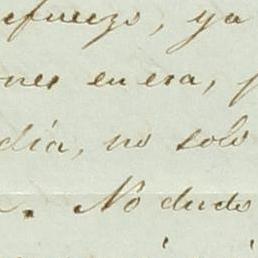 efuerzo, ya
ones en esa, p
dia, no solo
. No dudo